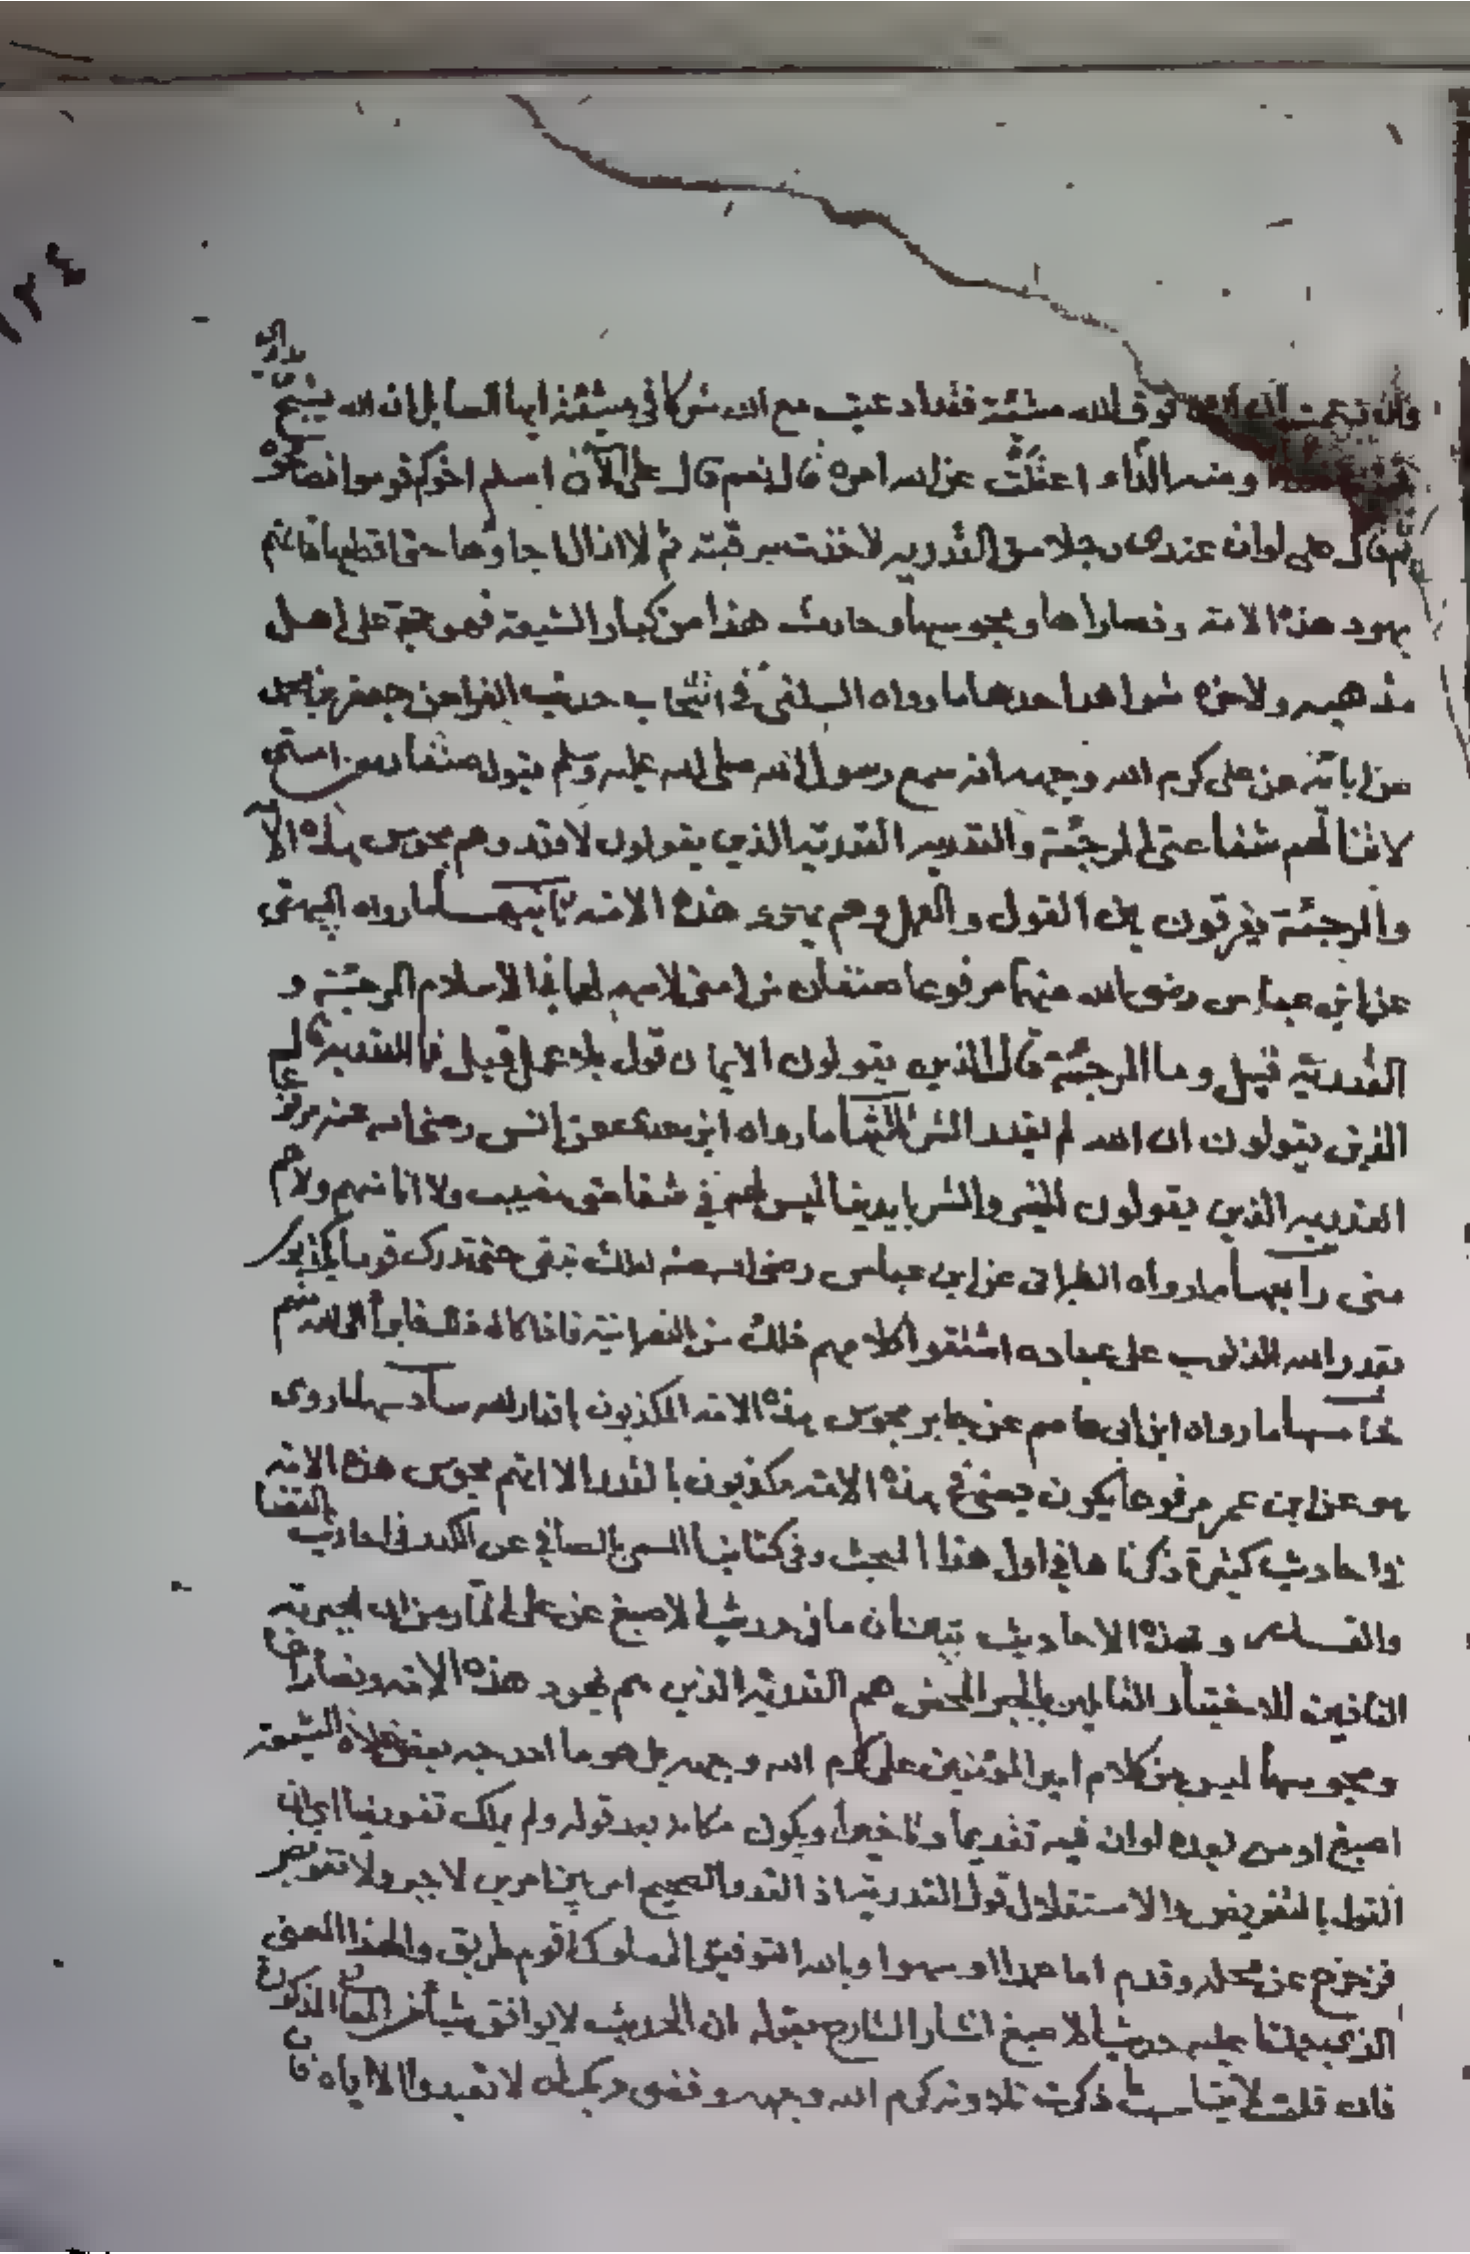 ١٣٤
وان زعمت فوق الله مشئة فقد ادعيت مع الله شركا في مشئته ايها السايل ان الله يشج ويداوى
ومنه الداء اعقلت عن الله امره قال نعم قال على الآن اسلم اخوكم قوموا فصافحوه
ثم قال على لو ان عندى رجلا من القدريه لاخذت برقبته ثم لا ازال اجاوها حتى اقطعها فانهم
يهود هذه الامة ونصاراها ومجوسها وحارث هذا من كبار الشيعة فهو حجة على اهل
مذهبه ولاخره شواهد احدها ما رواه السلفى فى انتخاب حديث الفرا عن جعفر بن محمد
عن ابائه عن على كرم الله وجهه انه سمع رسول الله صلى الله عليه وسلم يقول صنفان من امتى
لا تنالهم شفاعتى المرجئة والقدريه القدرية الذي يقولون لا قدر وهم مجوس هذه الامه
والمرجئة يفرقون بين القول والعمل وهم يهود هذه الامه ثانيهما ما رواه البيهقى
عن ابن عباس رضى الله عنهما مرفوعا صنفان من امتى لا سهم لهما فى الاسلام المرجئة و
القدرية قيل وما المرجئة قال الذين يقولون الايمان قول بلا عمل قيل فما القدريه قال
الذين يقولون ان الله لم يقدر الشر ثالثها ما رواه ابن عدى عن انس رضى الله عنه مرفوعا
القدريه الذين يقولون الخير والشر بايدينا ليس لهم فى شفاعتى نصيب ولا انا منهم ولا هم
منى رابعها ما رواه الطبرانى عن ابن عباس رضى الله عنه لعلك تبقى حتى تدرك قوما يكذبون
بقدر الله الذنوب على عباده اشتقوا كلامهم ذلك من النصرانية فاذا كان ذلك فابرأ الى الله منهم
خامسها ما رواه ابن ابى عاصم عن جابر مجوس هذه الامه المكذبون باقدار الله سادسها ما روى
هو عن ابن عمر مرفوعا يكون يعنى فى هذه الامه مكذبون بالقدر الا انهم مجوس هذه الامه
فى احاديث كثيرة ذكرناها فى اول هذا البحث وفى كتابنا المسمى بالصافى عن الكدر فى احاديث القضا
والقدر وبهذه الاحاديث تبين ان ما فى حديث الاصبغ عن على المار من ان الجبرية
النافين للاختيار القايلين بالجبر المحض هم القدرية الذين هم يهود هذه الامه ونصاراها
ومجوسها ليس من كلام امير المؤمنين على كرم الله وجهه بل هو ما ادرجه بعض غلاة الشيعة
اصبغ او من بعده او ان فيه تقديما وتاخيرا ويكون مكانه بعد قوله ولم يملك تفويضا اي ان
القول بالتفويض والاستقلال قول القدرية اذ القدر الصحيح امر بين امرين لا جبر ولا تفويض
فزحزح عن محله وقدم اما عمدا او سهوا وبالله التوفيق لسلوك اقوم طريق ولهذا المعنى
الذى حملنا عليه حديث الاصبغ اشار الشارح بقوله ان الحديث لا يوافق شيأ من المعانى المذكورة
فان قلت لا يناسب ذكرت تلاوته كرم الله وجهه وقضى ربك ان لا تعبدوا الا اياه فان